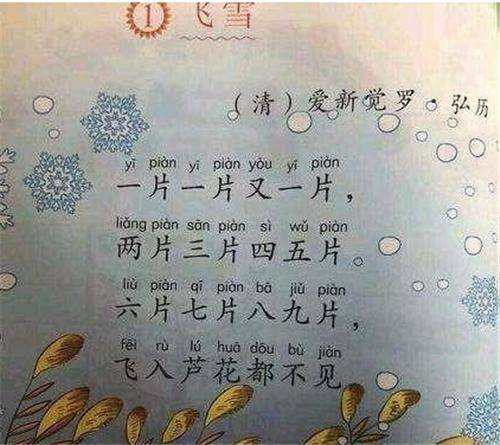 1 飞雪
（清）爱新觉罗·弘历
yī piàn yī piàn yòu yí piàn
一片一片又一片，
liǎng piàn sān piàn sì wǔ piàn
两片三片四五片。
liù piàn qī piàn bā jiǔ piàn
六片七片八九片，
fēi rù lú huā dōu bù jiàn
飞入芦花都不见